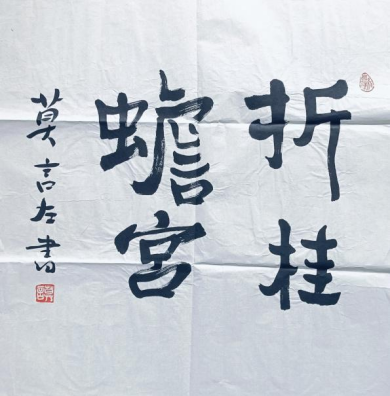 折桂
蟾宫
莫言左書